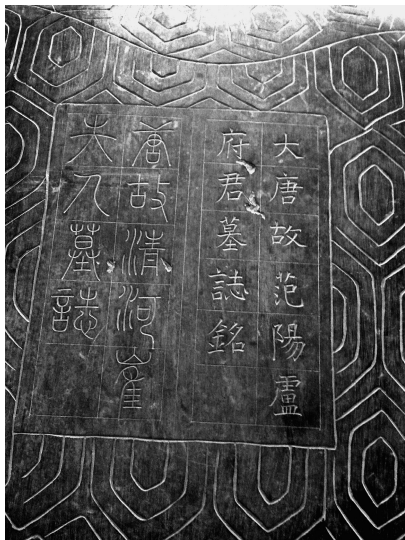 大唐故范陽盧
府君墓誌銘
唐故清河崔
夫人墓誌